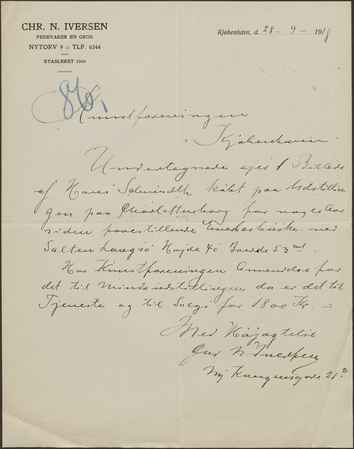 CHR. N. IVERSEN
PEDEVARER EN GROS
NYTORV 9 :: TLF. 6344
ETABLERET
Kjøbenhavn, d. 28 - 9 - 191
Kunstforeningen
Kjøbenhavn
Undertegnede ejer 1 Billede
af Hans Smidth købt paa Udstillin
gen paa Charlottenborg for nogle Aar
siden forestillende
Højde 40 Brede 53
Har Kunstforeningen Anvendelse for
det til Mindeudstillingen da er det til
Tjeneste og til Salgs for 1800 Kr.
Med Højagtelse
Chr N Iversen
Ny Kongensgade 21